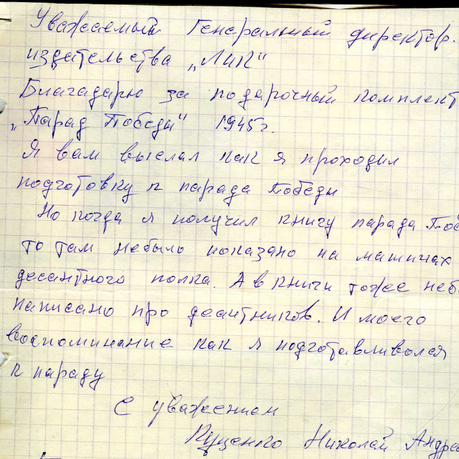 Уважаемый Генеральный директор.
издательства „ЛиК“
Благодарю за подарочный комплект
„Парад Победы“ 1945г.
Я вам выслал как я проходил
подготовку к парада Победы
Но когда я получил книгу парада Поб
то там небыло показано на машинах
десантного полка. А в книги тоже неб
написано про деситников. И моего
воспоминание как я подготавливался
к параду
С уважением
Куценко Николай Андре